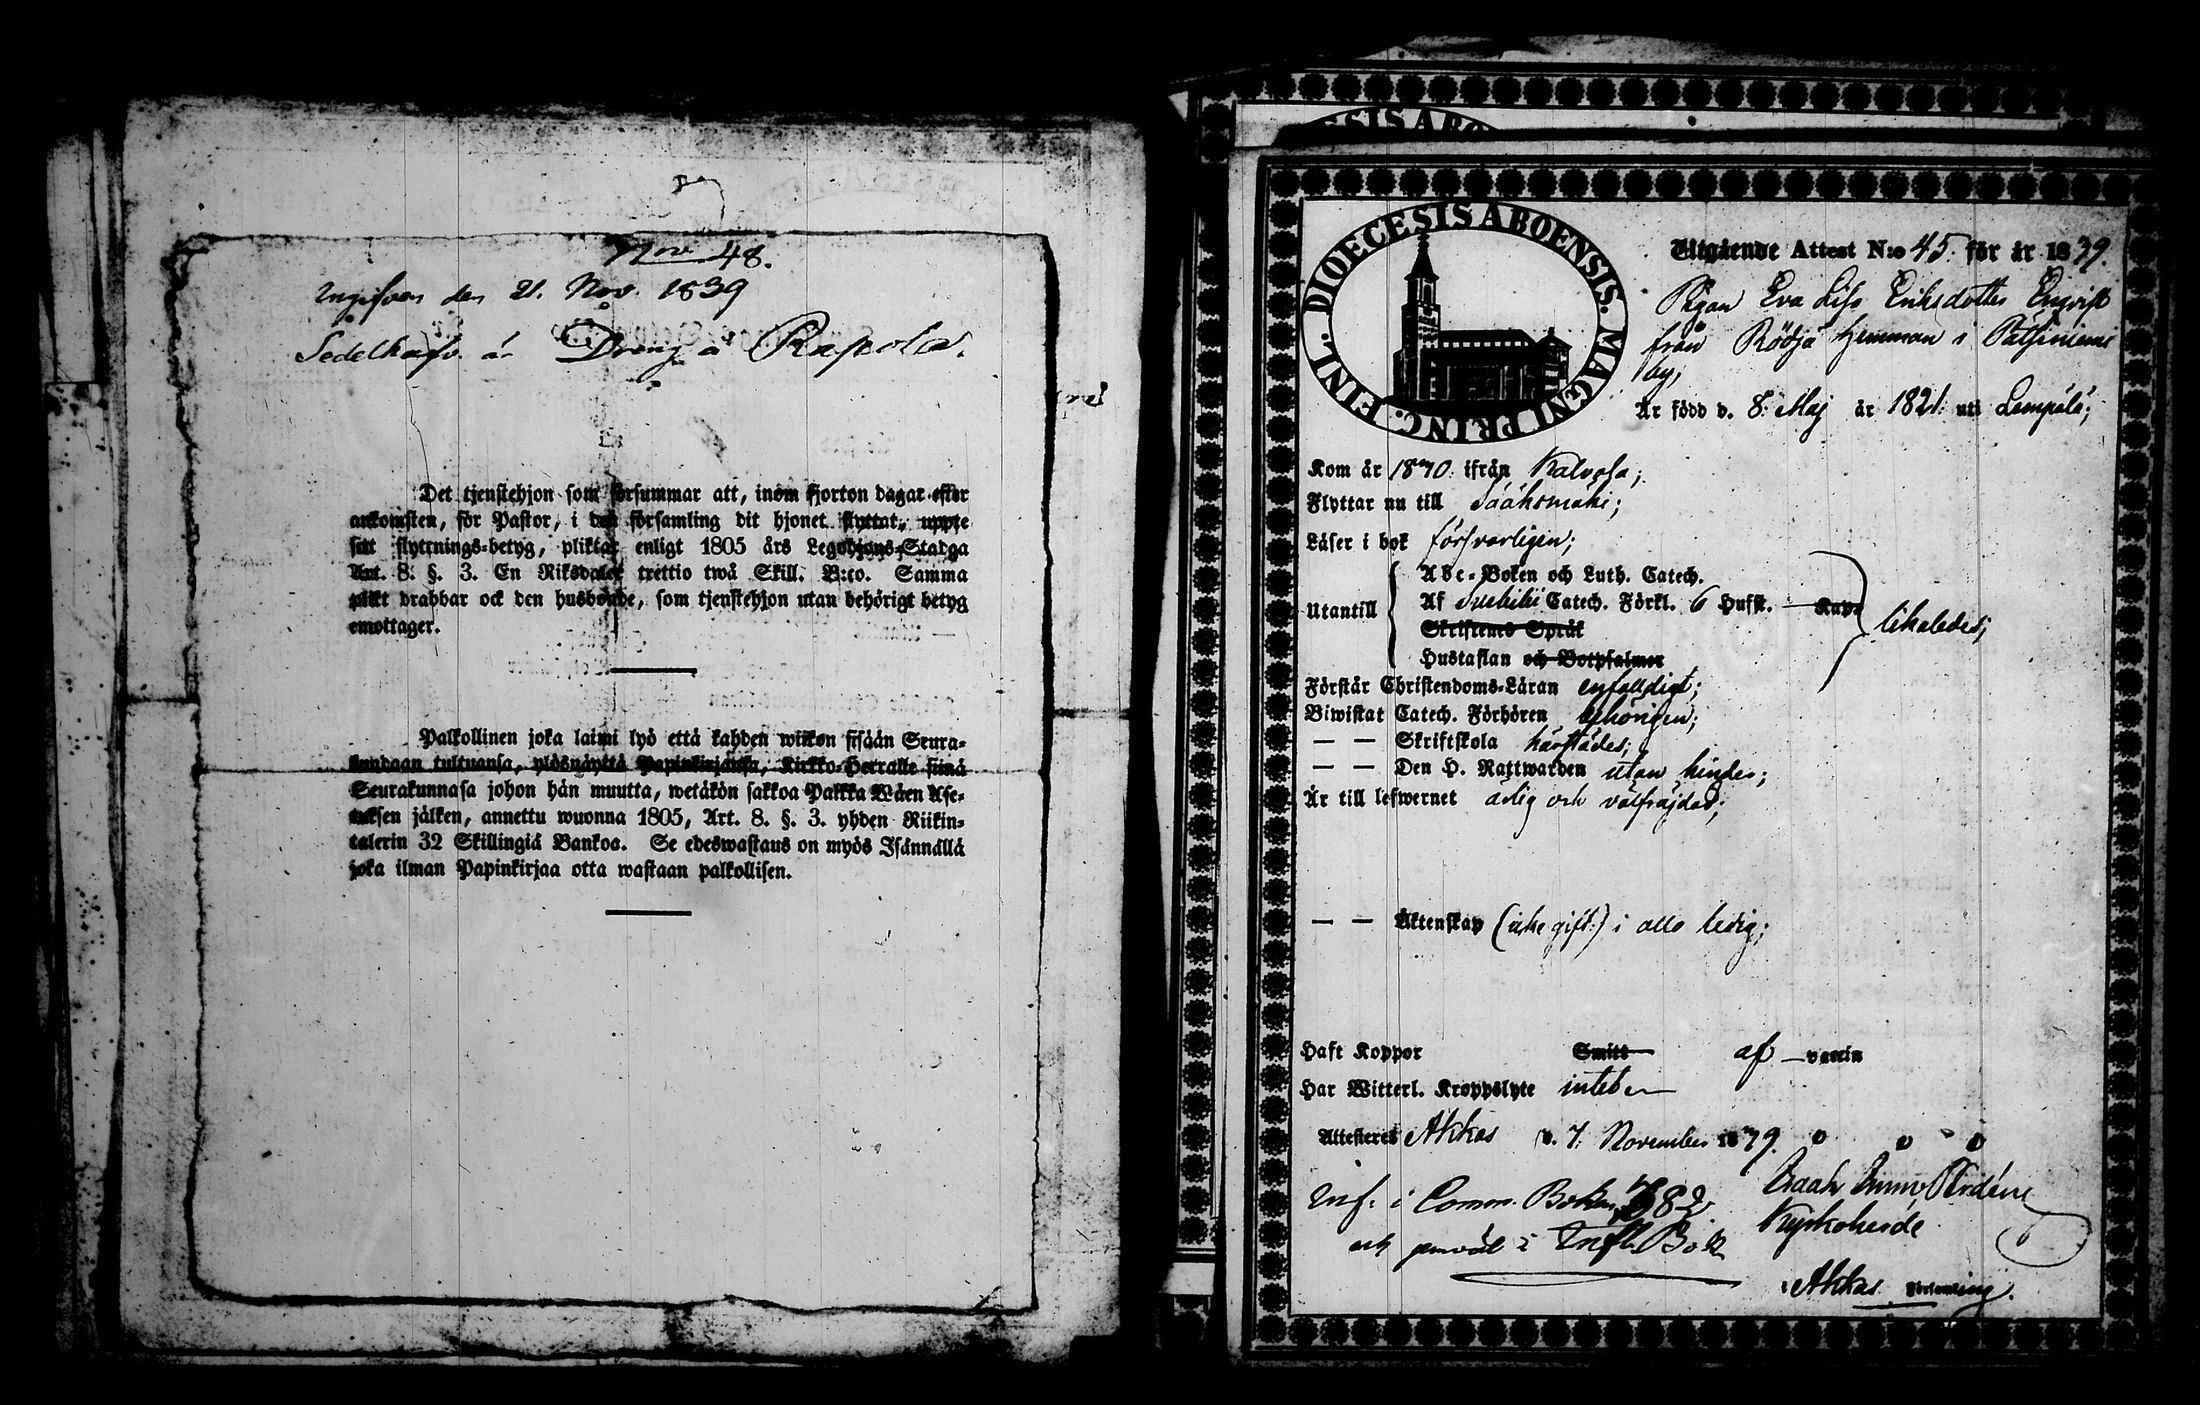 Nro 48.
Ingifven den 21. Nov. 1839
Sedelhafv. är Dräng å Rapola.
Det tjenstehjon som försummar att, inom fjorton dagar efter
ankomsten, för Pastor, i den församling dit hjonet flyttat, uppte
sitt flyttnings-betyg, pliktar enligt 1805 års Legohjons-Stadga
Art. 8. §. 3. En Riksdaler trettio twå Skill. B:co. Samma
plikt drabbar ock den husbonde, som tjenstehjon utan behörigt betyg
emottager.
Palkollinen joka laimi lyö että kahden wiikon sisään Seura-
kundaan tultuansa, ylösnäyttä Papinkirjänsä, Kirkko-Herralle siinä
Seurakunnasa johon hän muutta, wetäkön sakkoa Palkka Wäen Ase-
tuksen jälken, annettu wuonna 1805, Art. 8. §. 3. yhden Riikin-
talerin 32 Skillingiä Bankoa. Se edeswastaus on myös Isännällä
joka ilman Papinkirjaa otta wastaan palkollisen.
DIOECESIS ABOENSIS. MAGNI PRINC. FINL.
Utgående Attest N:o 45. för år 1839.
Pigan Eva Lisa Eriksdotter Engvist
från Rödja hemman i
by,
Är född d. 8. Maj år 1821. uti Lempälä;
Kom år 1840. ifrån Kalvola;
Flyttar nu till Sääksmäki;
Läser i bok försvarligen;
Utantill
Abc-Boken och Luth. Catech.
Af Svebilii Catech. Förkl. 6 Hufst. — Kap.
Skriftens Språk
Hustaflan och Botpsalmer
likaledes;
Förstår Christendoms-Läran enfaldigt;
Biwistat Catech. Förhören behörigen;
— — Skriftskola härstädes;
— — Den H. Nattwarden utan hinder;
Är till lefwernet ärlig och välfräjdad;
— — Äktenskap (icke gift:) i allo ledig;
Haft Koppor Smitt af — vaccin
Har Witterl. Kroppslyte intet
Attesteres Akkas d. 7. November 1839.
Inf. i Comm. Boken 682
och jemväl i Infl. Bok
Isaak
Kyrkoherde
i Akkas Församling.